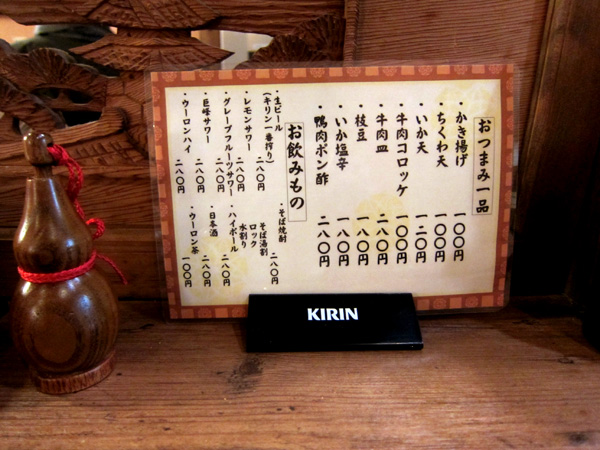 おつまみ一品
・かき揚げ 一〇〇円
・ちくわ天 一〇〇円
・いか天 一二〇円
・牛肉コロッケ 一〇〇円
・牛肉皿 二八〇円
・枝豆 一八〇円
・いか塩辛 一八〇円
・鴨肉ポン酢 二八〇円
お飲みもの
・生ビール
(キリン一番搾り) 二八〇円
・レモンサワー 二八〇円
・グレープフルーツサワー 二八〇円
・巨峰サワー 二八〇円
・ウーロンハイ 二八〇円
・そば焼酎 二八〇円
そば湯割
ロック
水割り
・ハイボール 二八〇円
・日本酒 二八〇円
・ウーロン茶 一〇〇円
KIRIN